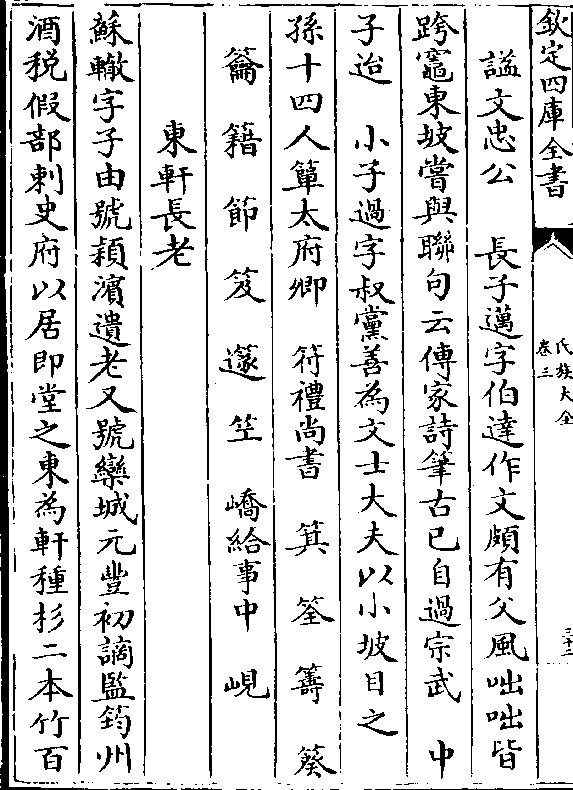 欽定四庫全書
氏族大全
卷三
三十二
諡文忠公　長子邁字伯達作文頗有父風咄咄皆
跨竈東坡嘗與聯句云傳家詩筆古已自過宗武　中
子迨　小子過字叔黨善為文士大夫以小坡目之
孫十四人簞太府卿　符禮尚書　箕　筌　籌　䇶
籥　籍　節　笈　簶　笠　嶠給事中　峴
東軒長老
蘇轍字子由號頴濱遺老又號欒城元豐初謫監筠州
酒税假部刺史府以居即堂之東為軒種杉二本竹百